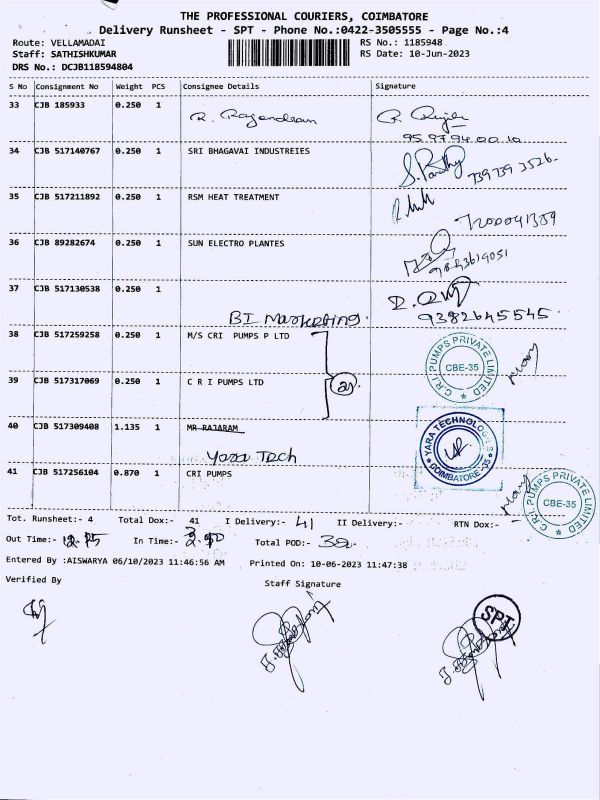 THE PROFESSIONAL COURIERS, COIMBATORE
Delivery Runsheet - SPT - Phone No.:0422-3505555 - Page No.:4
Route: VELLAMADAI RS No.: 1185948
Staff: SATHISHKUMAR RS Date: 10-Jun-2023
DRS No.: DCJB118594804
S No Consignment No Weight PCS Consignee Details Signature
33 CJB 185933 0.250 1
R. Rajendran
34 CJB 517140767 0.250 1 SRI BHAGAVAI INDUSTREIES
35 CJB 517211892 0.250 1 RSM HEAT TREATMENT
36 CJB 89282674 0.250 1 SUN ELECTRO PLANTES
37 CJB 517130538 0.250 1
BI Marketing.
9382645545
38 CJB 517259258 0.250 1 M/S CRI PUMPS P LTD
C.R.I. PUMPS PRIVATE LIMITED
CBE-35
39 CJB 517317069 0.250 1 C R I PUMPS LTD
40 CJB 517309408 1.135 1 MR RAJARAM
Yara Tech
YARA TECHNOLOGIES
COIMBATORE-35
41 CJB 517256104 0.870 1 CRI PUMPS
C.R.I. PUMPS PRIVATE LIMITED
CBE-35
Tot. Runsheet:- 4 Total Dox:- 41 I Delivery:- 41 II Delivery:- RTN Dox:-
Out Time:- In Time:- Total POD:-
Entered By :AISWARYA 06/10/2023 11:46:56 AM Printed On: 10-06-2023 11:47:38
Verified By Staff Signature
SPT